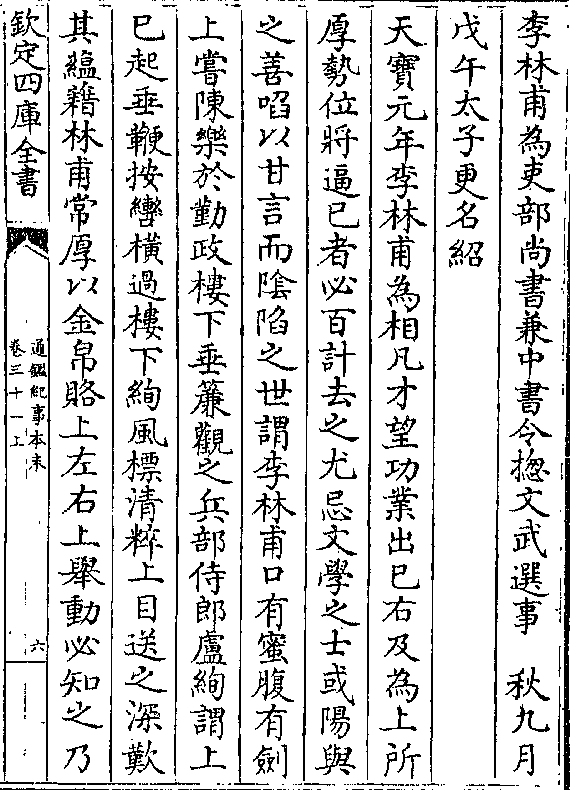 李林甫為吏部尚書兼中書令揔文武選事　秋九月
戊午太子更名紹
天寶元年李林甫為相凡才望功業出已右及為上所
厚勢位將逼已者必百計去之尤忌文學之士或陽與
之善啗以甘言而陰陷之世謂李林甫口有蜜腹有劍
上嘗陳樂於勤政樓下垂簾觀之兵部侍郎盧絢謂上
已起垂鞭按轡橫過樓下絢風標清粹上目送之深歎
其緼藉林甫常厚以金帛賂上左右上舉動必知之乃
欽定四庫全書
通鑑紀事本末
卷三十一上
六